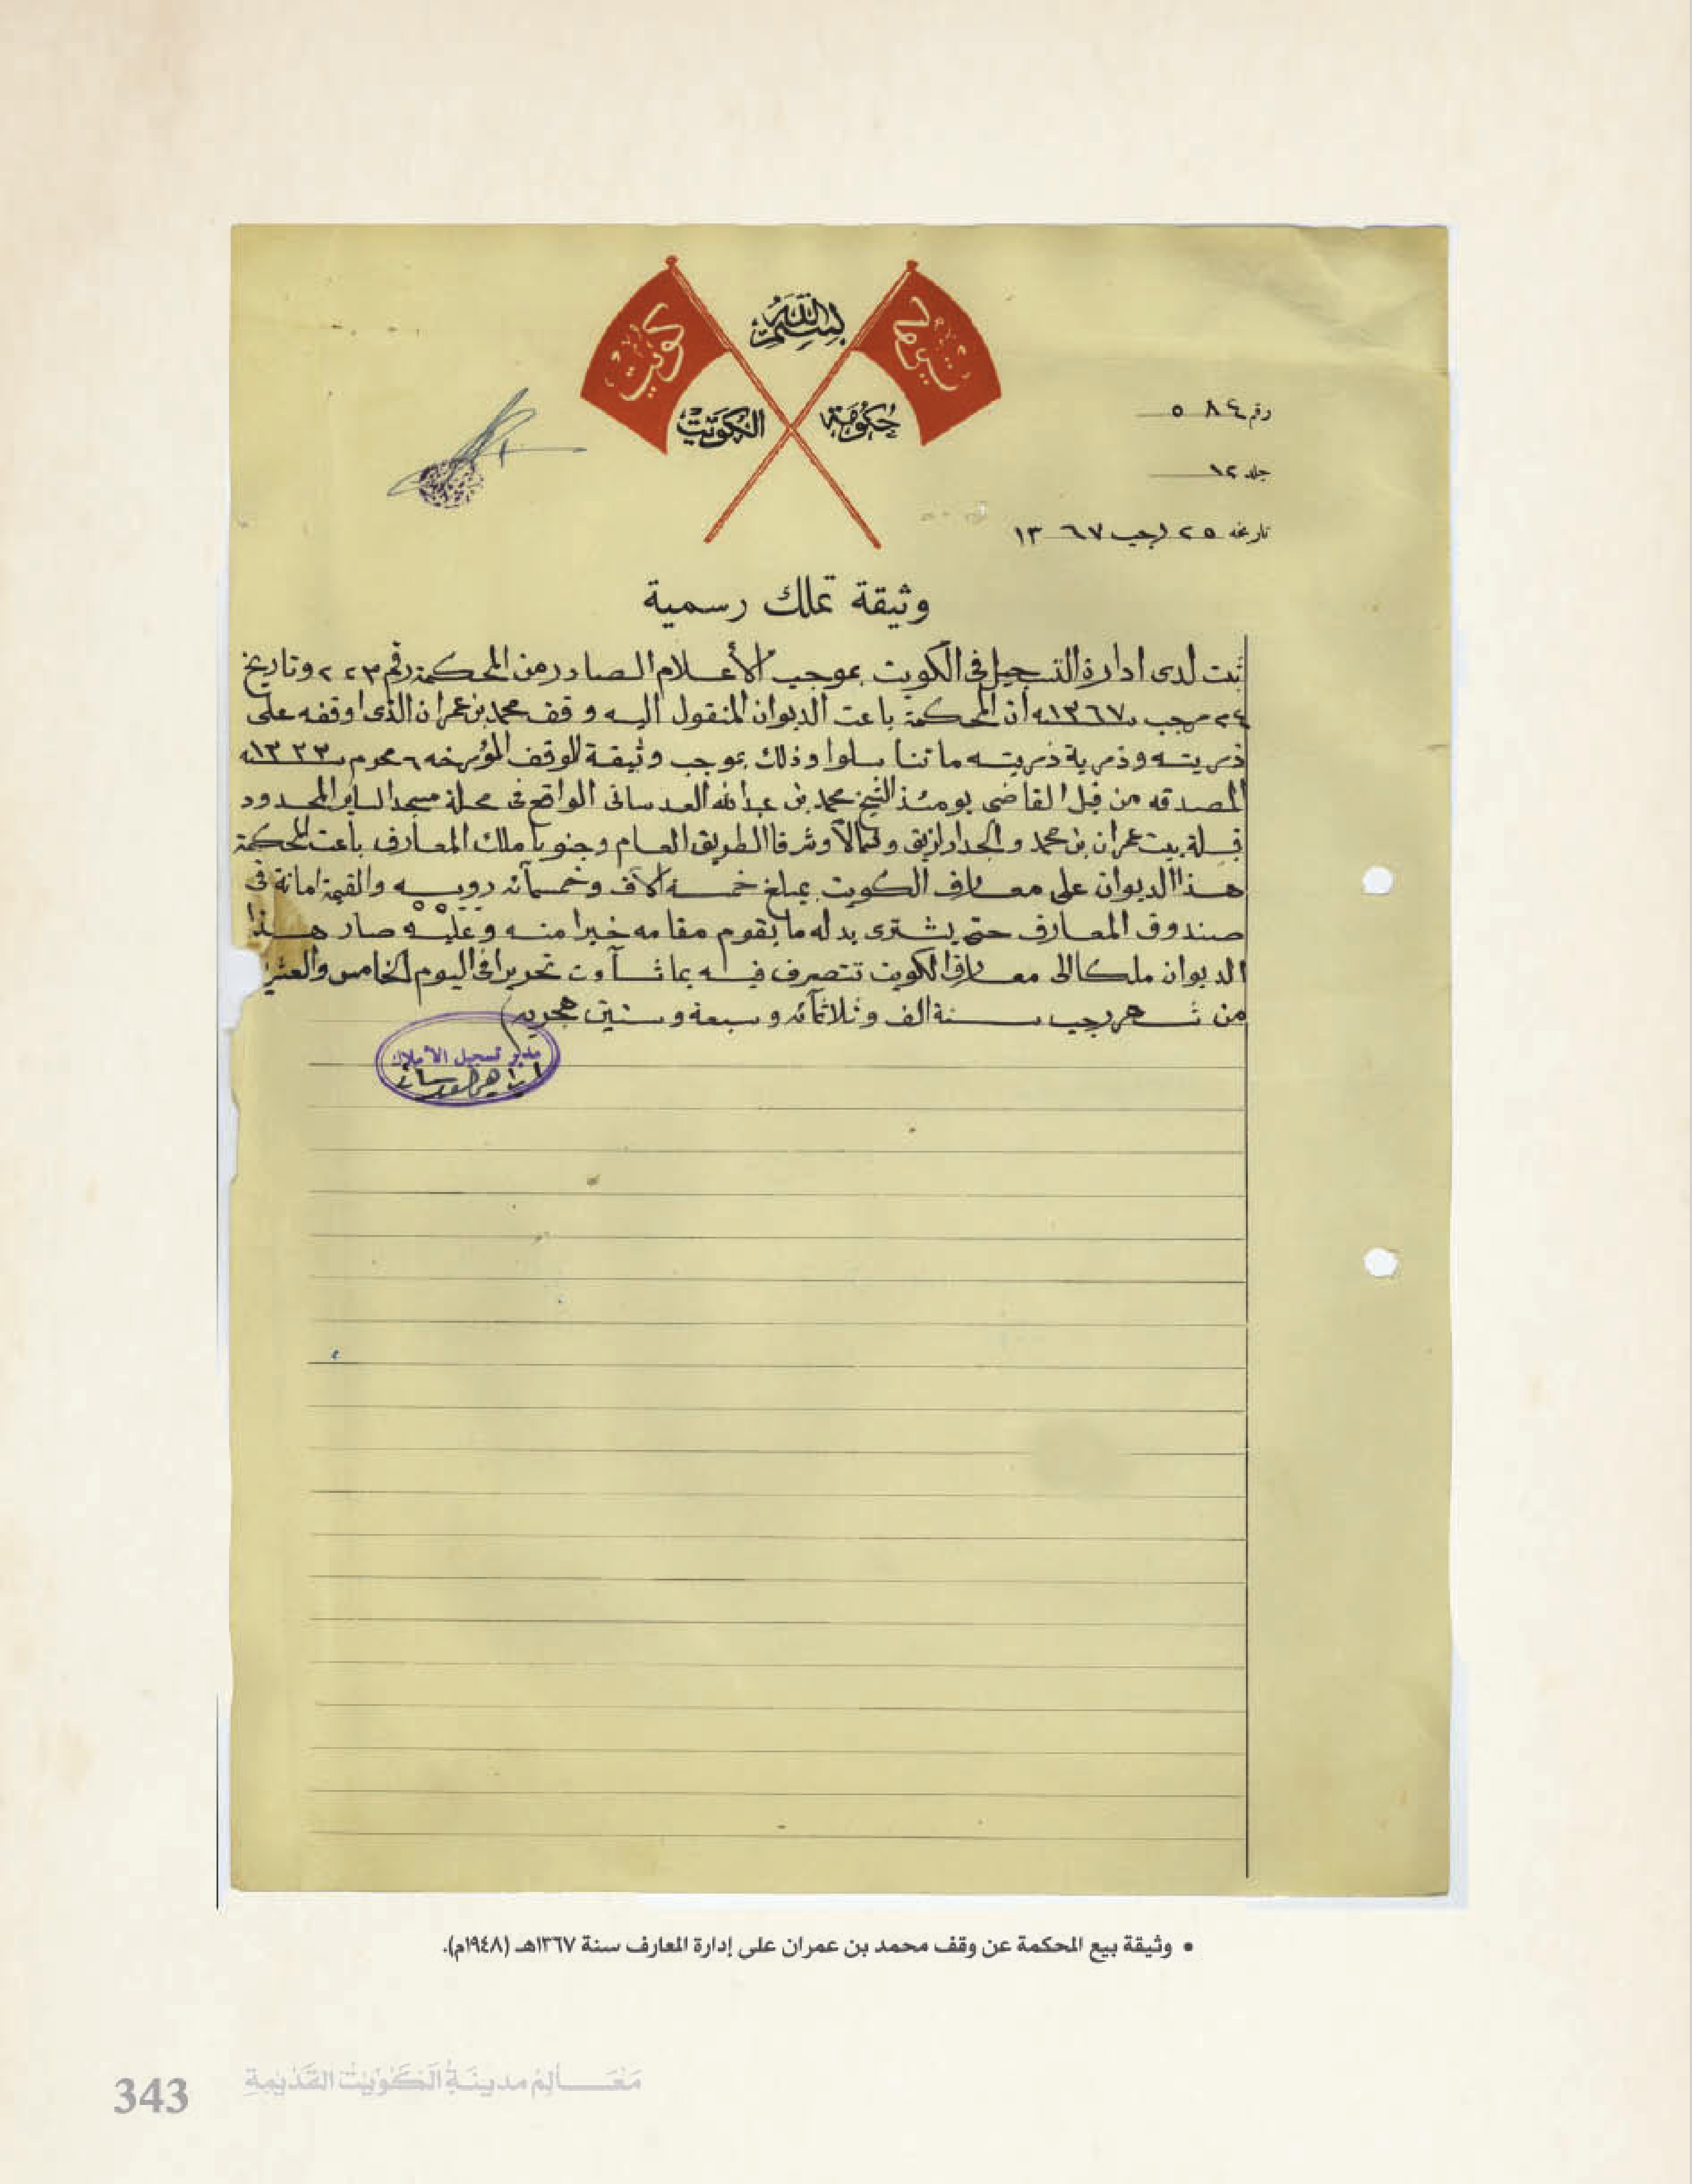 بسم الله
حكومة الكويت
كويت
كويت
رقم ٥٨٤
جلد ١٢
تاريخه ٢٥ رجب ١٣٦٧
وثيقة تملك رسمية
ثبت لدى ادارة التسجيل في الكويت بموجب الأعلام الصادر من المحكمة رقم ٢٢٣ وتاريخ
٢٤ رجب ١٣٦٧ ان المحكمة باعت الديوان المنقول اليه وقف محمد بن عمران الذى اوقفه على
ذريته وذرية ذريته ما تناسلوا وذلك بموجب وثيقة الوقف المؤرخه ٦ محرم ١٣٢٣
المصدقه من قبل القاضي يومئذ الشيخ محمد بن عبدالله العدساني الواقع في محلة مسجد الساير المحدود
قبلة بيت عمران بن محمد والجدار لزيق وشمالا وشرقا الطريق العام وجنوبا ملك المعارف باعت المحكمة
هذا الديوان على معارف الكويت بمبلغ خمسة الآف وخمسمآئه روبيه والقيمة امانة في
صندوق المعارف حتى يشترى بدله ما يقوم مقامه خيرا منه وعليه صار هذا
الديوان ملكا الى معارف الكويت تتصرف فيه بما شآءت تحريرا في اليوم الخامس والعشرين
من شهر رجب سنة الف وثلاثمآئه وسبعة وستين هجريه
مدير تسجيل الأملاك
• وثيقة بيع المحكمة عن وقف محمد بن عمران على إدارة المعارف سنة ١٣٦٧هـ (١٩٤٨م).
343
معالم مدينة الكويت القديمة